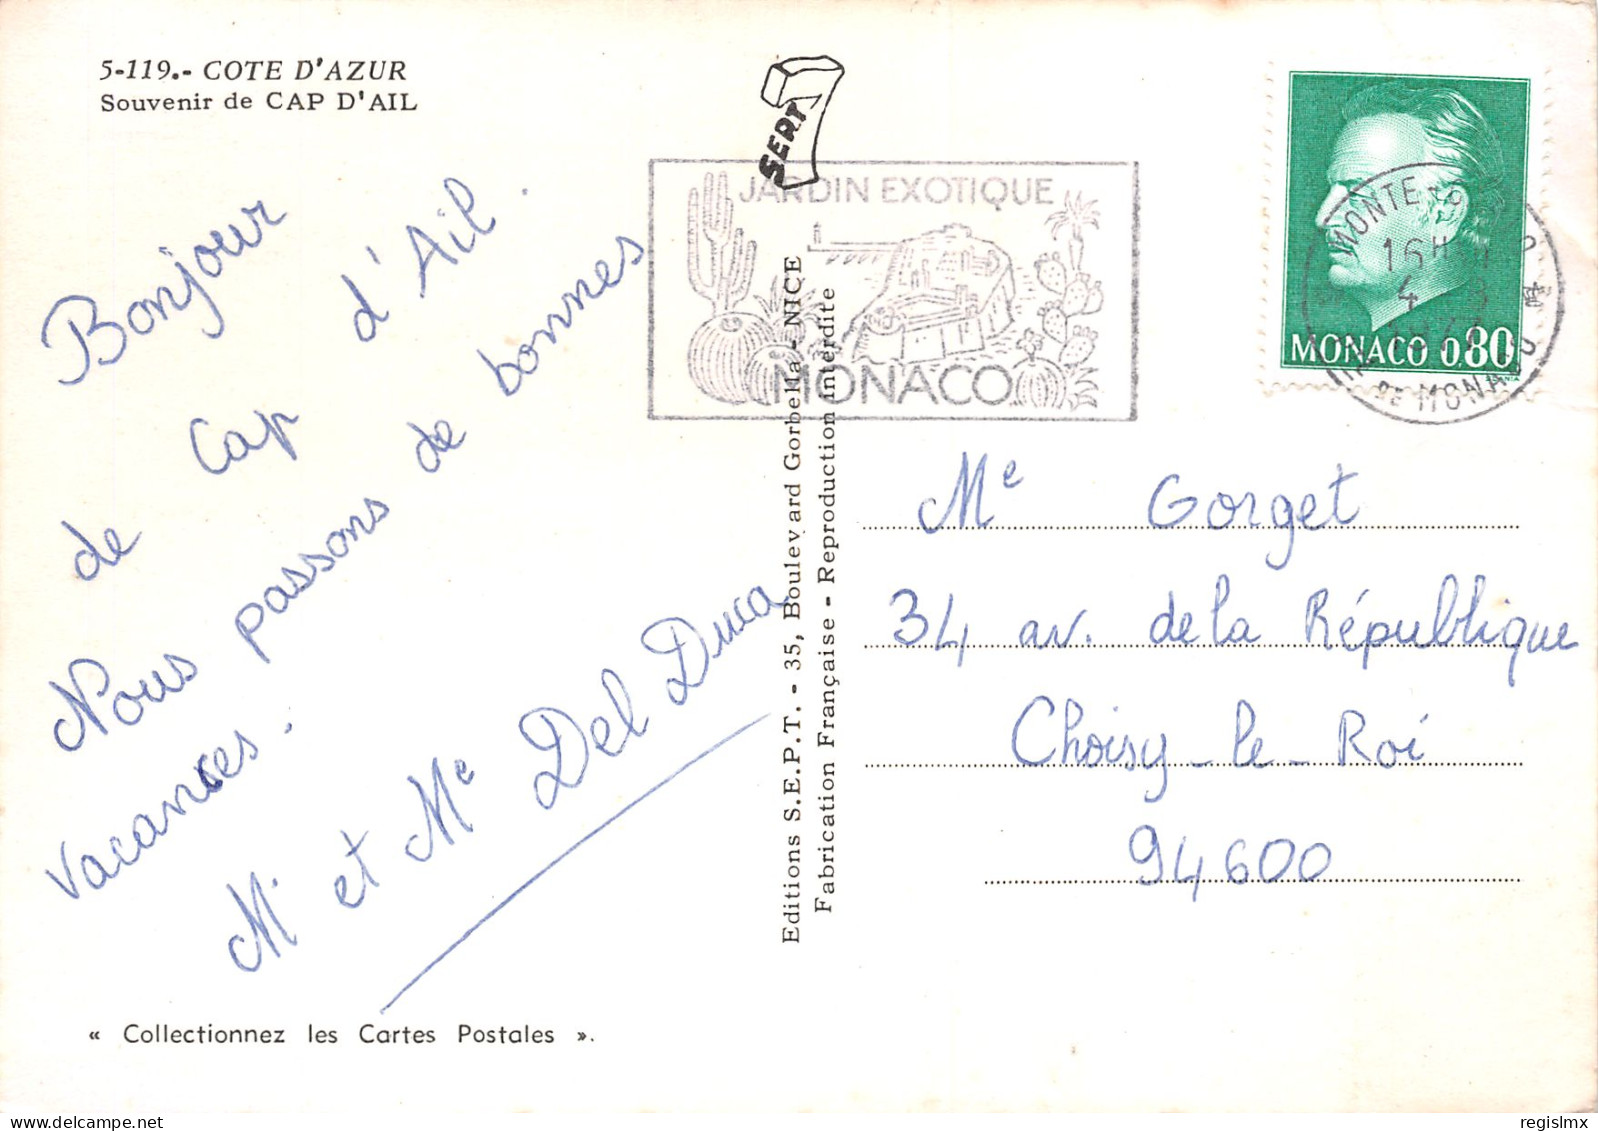 5-119.- COTE D'AZUR
Souvenir de CAP D'AIL
Bonjour
de Cap d'Ail.
Nous passons de bonnes
vacances.
M. et Me Del Duca
« Collectionnez les Cartes Postales ».
Editions S.E.P.T. - 35, Boulevard Gorbella - NICE
Fabrication Française - Reproduction interdite
JARDIN EXOTIQUE
MONACO
MONACO 0,80
MONTE
16H
4
DE MONACO
Me Gorget
34 av. de la République
Choisy-le-Roi
94600
regislmx